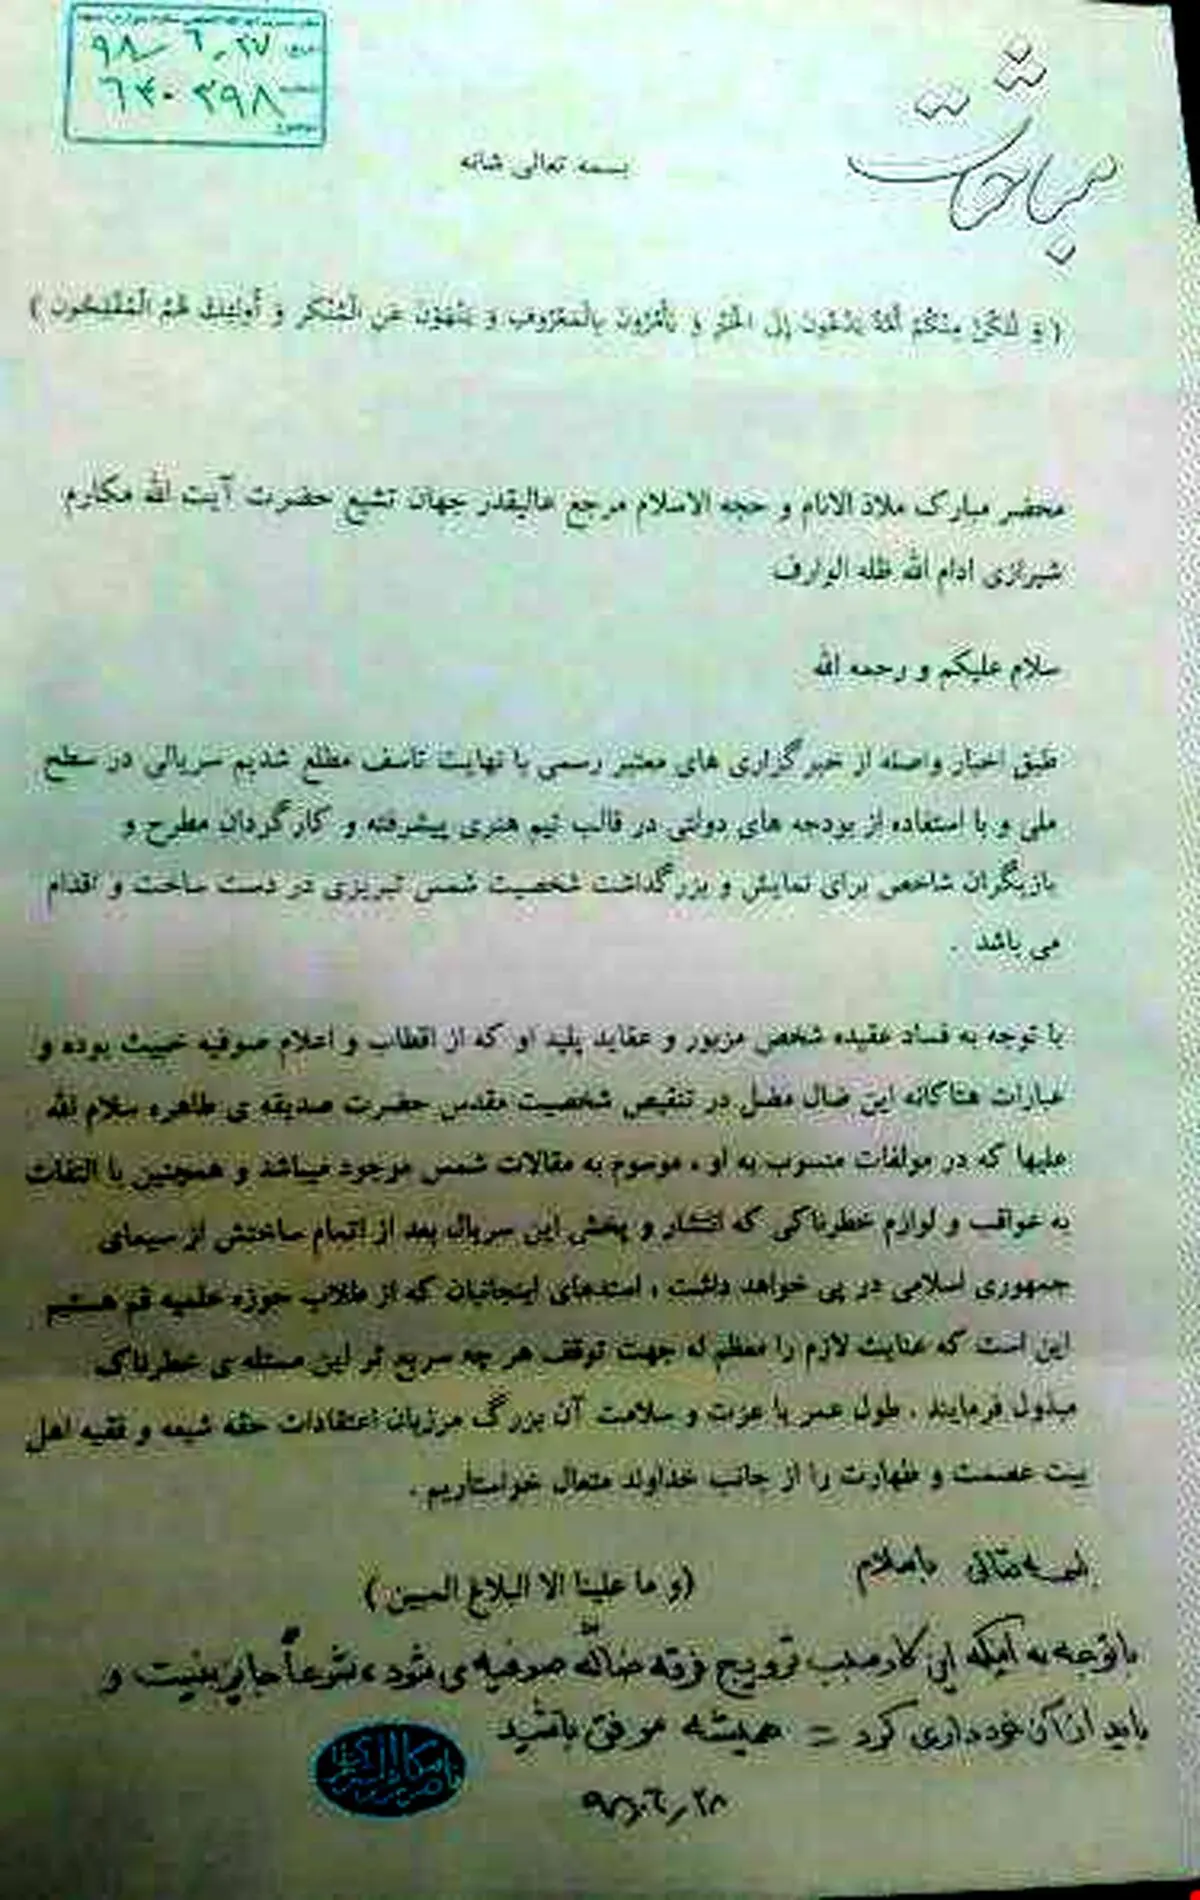 ۹۸-۶-۲۷
۶۴۰۳۹۸
مباحثات
بسمه تعالی شانه
( وَ لْتَكُنْ مِنْكُمْ أُمَّةٌ يَدْعُونَ إِلَى الْخَيْرِ وَ يَأْمُرُونَ بِالْمَعْرُوفِ وَ يَنْهَوْنَ عَنِ الْمُنْكَرِ وَ أُولئِكَ هُمُ الْمُفْلِحُونَ )
محضر مبارک ملاذ الانام و حجه الاسلام مرجع عالیقدر جهان تشیع حضرت آیت الله مکارم
شیرازی ادام الله ظله الوارف
سلام علیکم و رحمه الله
طبق اخبار واصله از خبرگزاری های معتبر رسمی با نهایت تاسف مطلع شدیم سریالی در سطح
ملی و با استفاده از بودجه های دولتی در قالب تیم هنری پیشرفته و کارگردان مطرح و
بازیگران شاخص برای نمایش و بزرگداشت شخصیت شمس تبریزی در دست ساخت و اقدام
می باشد .
با توجه به فساد عقیده شخص مزبور و عقاید پلید او که از اقطاب و اعلام صوفیه خبیث بوده و
عبارات هتاکانه این ضال مضل در تنقیص شخصیت مقدس حضرت صدیقه ی طاهره سلام الله
علیها که در مولفات منسوب به او ، موسوم به مقالات شمس موجود میباشد و همچنین با التفات
به عواقب و لوازم خطرناکی که انتشار و پخش این سریال بعد از اتمام ساختش از سیمای
جمهوری اسلامی در پی خواهد داشت ، استدعای اینجانبان که از طلاب حوزه علمیه قم هستیم
این است که عنایت لازم را معظم له جهت توقف هر چه سریع تر این مسئله ی خطرناک
مبذول فرمایند . طول عمر با عزت و سلامت آن بزرگ مرزبان اعتقادات حقه شیعه و فقیه اهل
بیت عصمت و طهارت را از جانب خداوند متعال خواستاریم .
(و ما علینا الا البلاغ المبین)
بسمه تعالی باسلام
با توجه به اینکه این کار سبب ترویج فرقه ضالّه صوفیه می شود ، شرعاً جایز نیست و
باید از آن خودداری کرد = همیشه موفق باشید
۹۸،۶،۲۸
ناصر مکارم الشیرازی